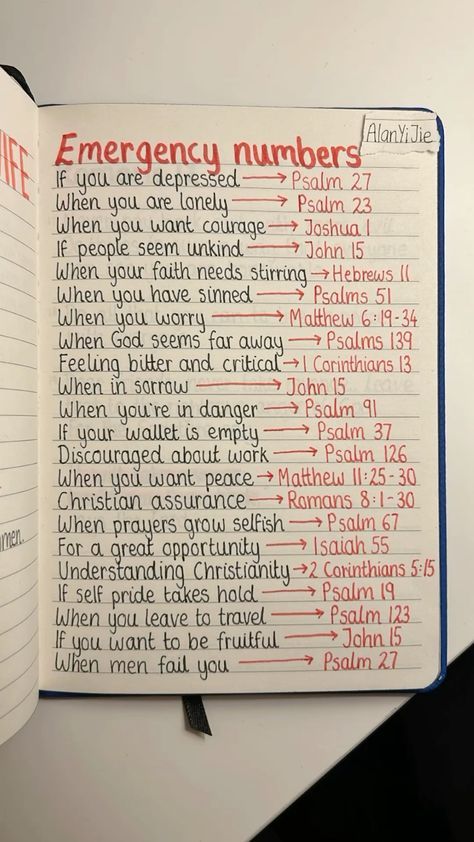 IFE
AlanYiJie
Emergency numbers
If you are depressed → Psalm 27
When you are lonely → Psalm 23
When you want courage → Joshua 1
If people seem unkind → John 15
When your faith needs stirring → Hebrews 11
When you have sinned → Psalms 51
When you worry → Matthew 6:19-34
When God seems far away → Psalms 139
Feeling bitter and critical → 1 Corinthians 13
When in sorrow → John 15
When you're in danger → Psalm 91
If your wallet is empty → Psalm 37
Discouraged about work → Psalm 126
When you want peace → Matthew 11:25-30
Christian assurance → Romans 8:1-30
When prayers grow selfish → Psalm 67
For a great opportunity → Isaiah 55
men.
Understanding Christianity → 2 Corinthians 5:15
If self pride takes hold → Psalm 19
When you leave to travel → Psalm 123
If you want to be fruitful → John 15
When men fail you → Psalm 27